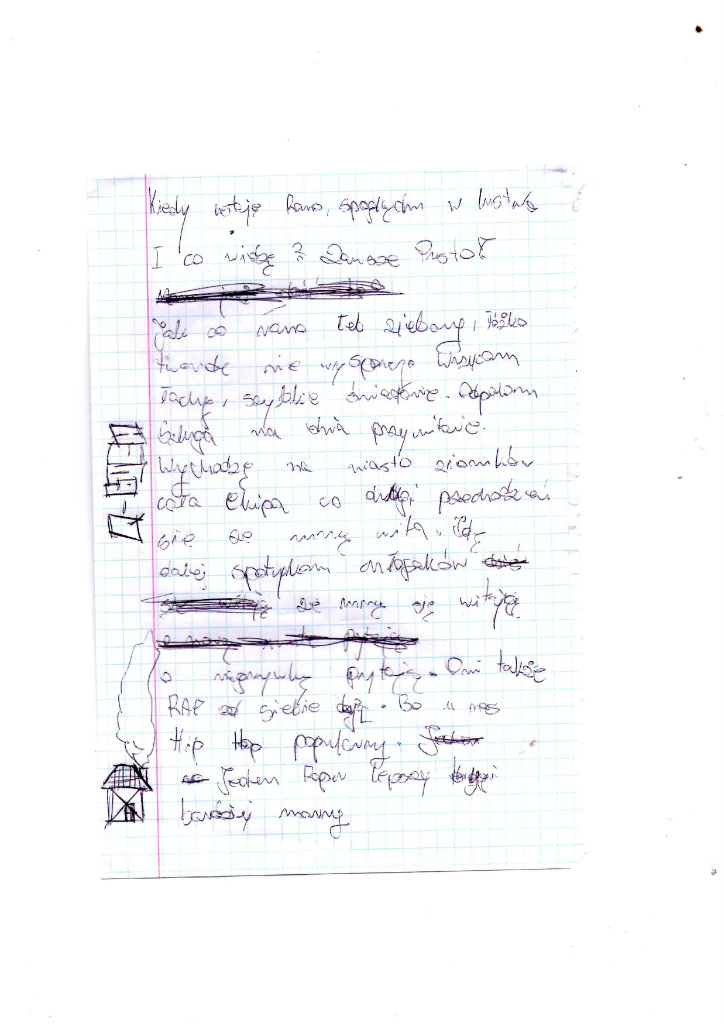 Kiedy wstaję Rano, spoglądam w lustro
I co widzę? Zawsze Pusto!
Jak co rano łeb zjebany, łóżko
twarde nie wyspany Wrzucam
łachy, szybkie śniadanie. Odpalam
szluga na dnia przywitanie.
Wychodzę na miasto ziomków
cała Ekipa co drugi przechodzień
się ze mną wita. Idę
dalej spotykam małolatów
ze mną się witają
o nagrywkę pytają. Oni także
RAP z siebie dają. Bo u nas
Hip Hop popularny.
Jeden Raper lepszy drugi
bardziej marny